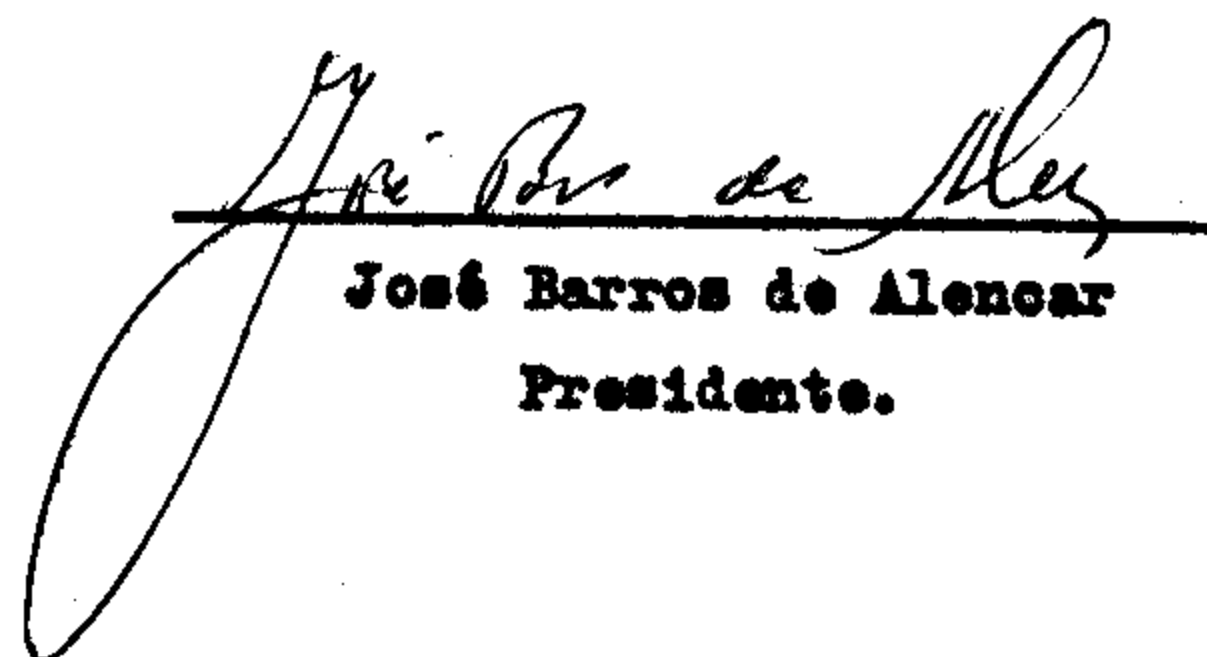 José Bros de Alen
José Barros de Alencar
Presidente.